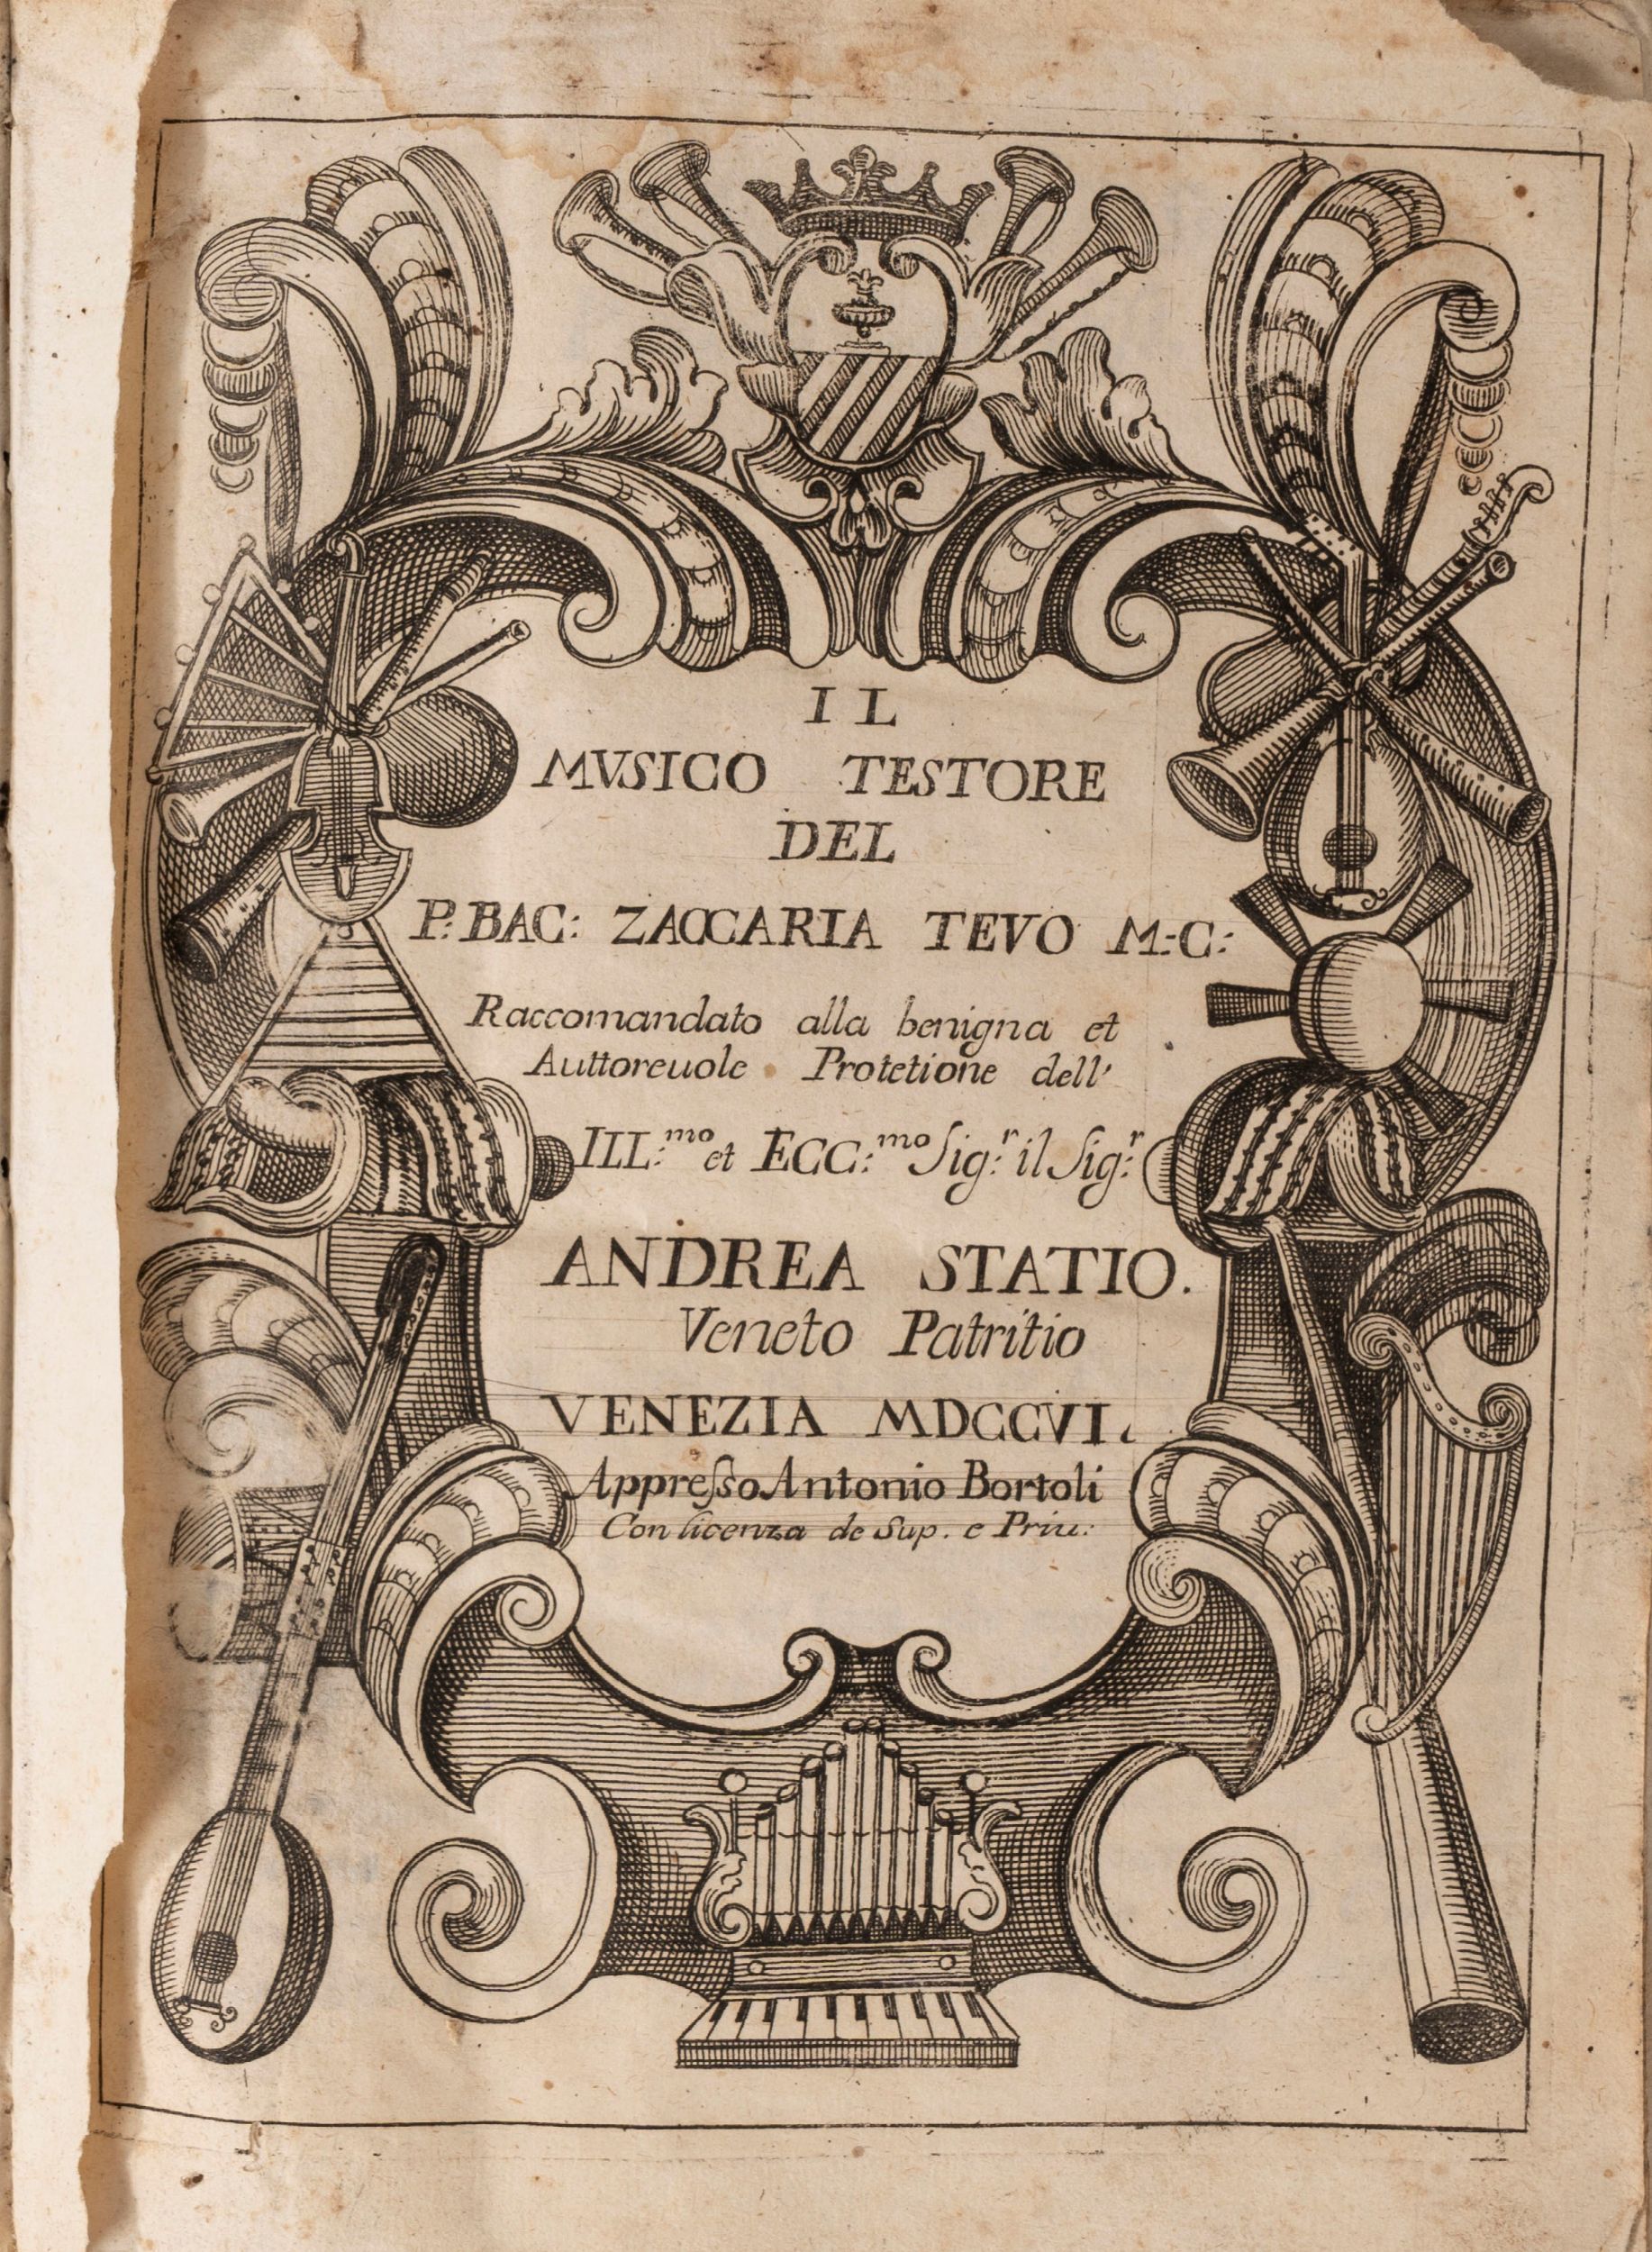 IL
MVSICO TESTORE
DEL
P: BAC: ZACCARIA TEVO M: C:
Raccomandato alla benigna et
Auttoreuole Protetione dell'
ILL:mo et ECC:mo Sig:r il Sig:r
ANDREA STATIO.
Veneto Patritio
VENEZIA MDCCVI.
Appreſso Antonio Bortoli
Con licenza de Sup. e Priu: